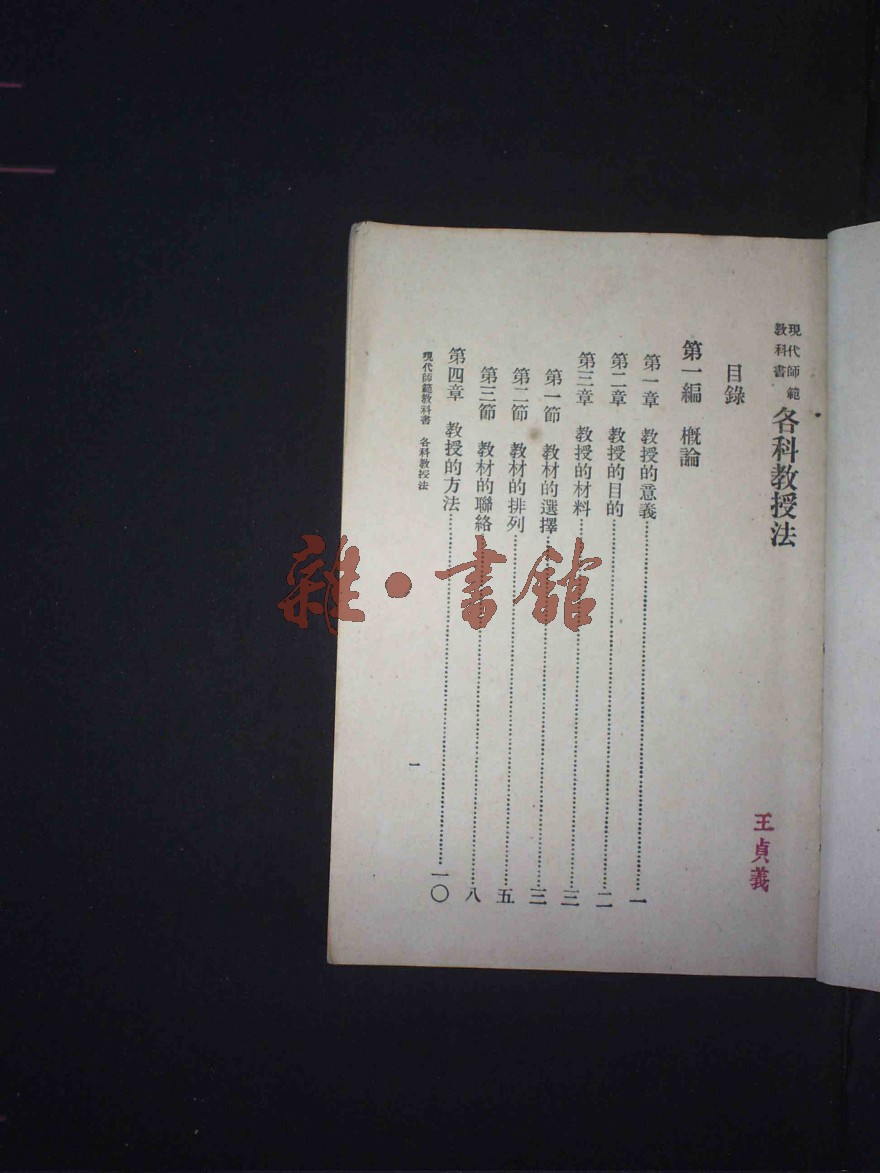 現代師範
教科書
各科教授法
目錄
第一編　概論
第一章　教授的意義……一
第二章　教授的目的……二
第三章　教授的材料……三
第一節　教材的選擇……三
第二節　教材的排列……五
第三節　教材的聯絡……八
第四章　教授的方法……一〇
現代師範教科書　各科教授法
一
王貞義
雜·書館